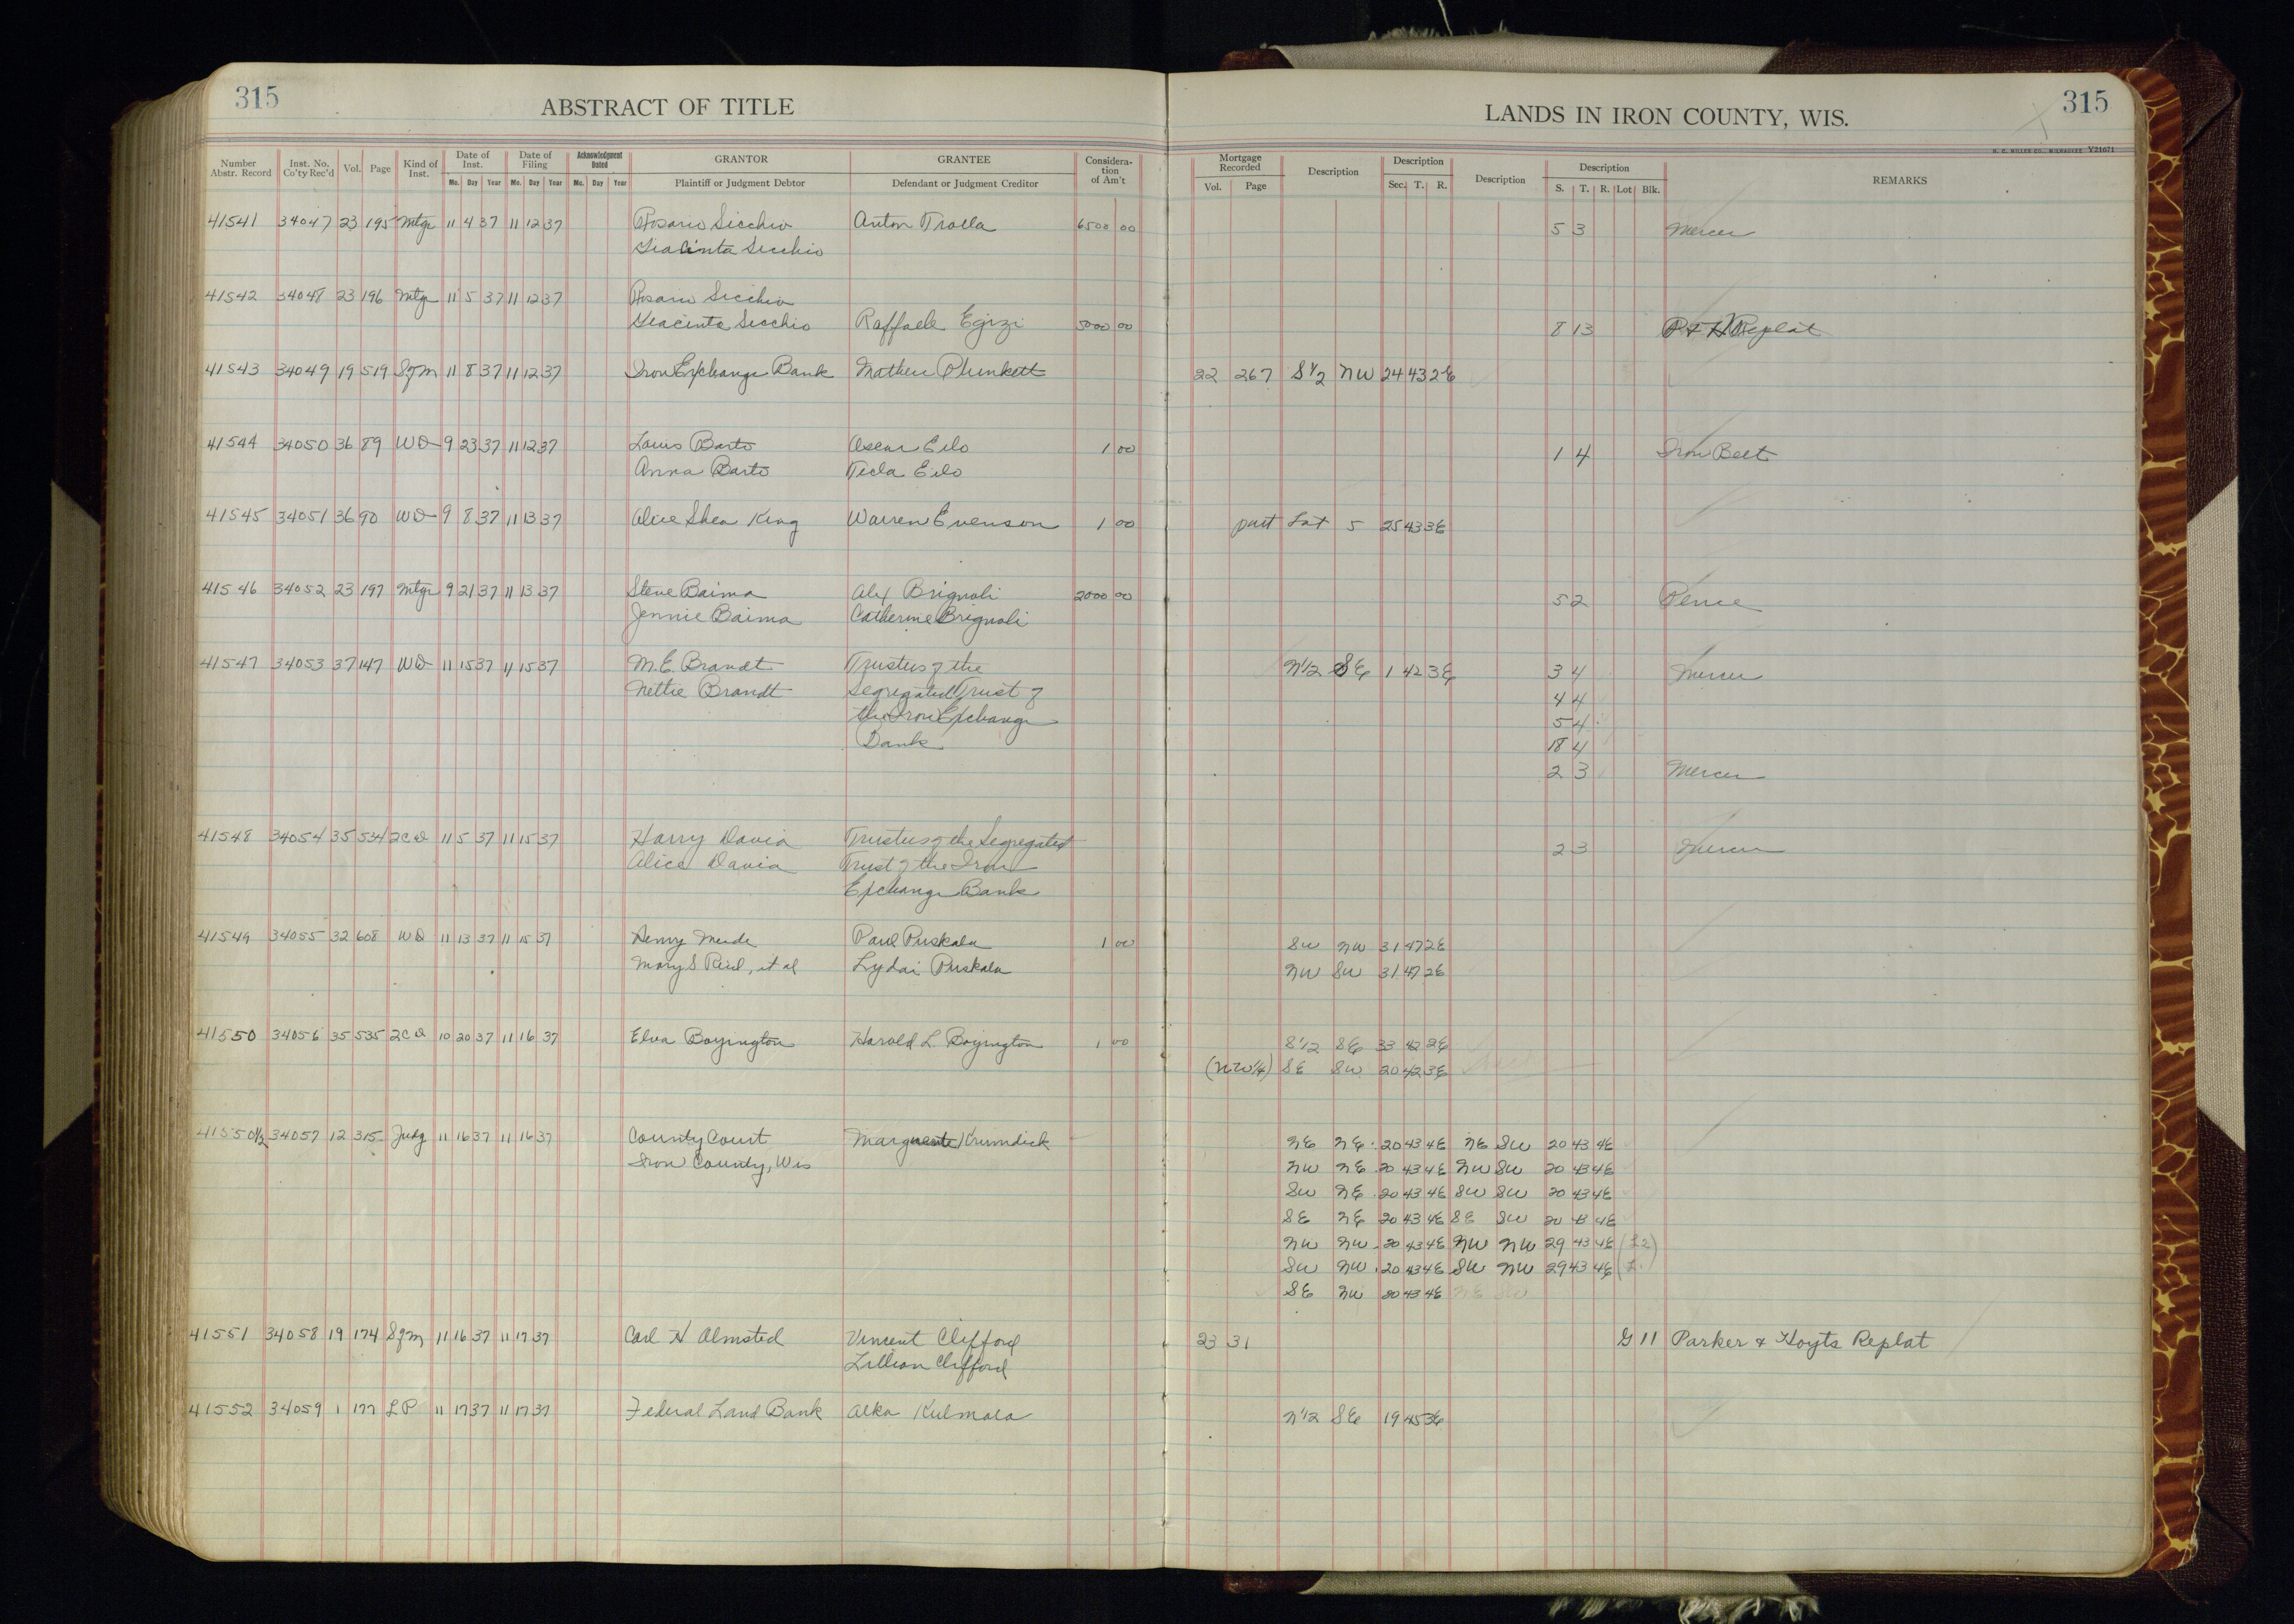 315
ABSTRACT OF TITLE
LANDS IN IRON COUNTY, WIS.
315
H. C. MILLER CO., MILWAUKEE Y21671
Number Abstr. Record Inst. No. Co'ty Rec'd Vol. Page Kind of Inst. Date of Inst. Mo. Day Year Date of Filing Mo. Day Year Acknowledgment Dated Mo. Day Year GRANTOR Plaintiff or Judgment Debtor GRANTEE Defendant or Judgment Creditor Considera- tion of Am't Mortgage Recorded Vol. Page Description Description Sec. T. R. Description Description S. T. R. Lot Blk. REMARKS
41541 34047 23 195 Mtge 11 4 37 11 12 37 Rosario Sicchio Anton Trolla 6500 00 5 3 Mercer
Giacinta Sicchio
41542 34048 23 196 Mtge 11 5 37 11 12 37 Rosario Sicchio
Giacinta Sicchio Raffaele Egizi 5000 00 8 13 P & H Replat
41543 34049 19 519 Sgm 11 8 37 11 12 37 Iron Exchange Bank Mathew Plunkett 22 267 S 1/2 NW 24 43 2E
41544 34050 36 89 WD 9 23 37 11 12 37 Louis Barto Oscar Eilo 1 00 1 4 Iron Belt
Anna Barto Tecla Eilo
41545 34051 36 90 WD 9 8 37 11 13 37 Alice Shea King Warren Evenson 1 00 part Lot 5 25 43 3E
41546 34052 23 197 Mtge 9 21 37 11 13 37 Steve Baima Alex Brignoli 2000 00 5 2 Pence
Jennie Baima Catherine Brignoli
41547 34053 37 147 WD 11 15 37 11 15 37 M.E. Brandt Trustees of the N1/2 SE 1 42 3E 3 4 Mercer
Nettie Brandt Segregated Trust of 4 4
the Iron Exchange 5 4
Bank 18 4
2 3 Mercer
41548 34054 35 534 2CD 11 5 37 11 15 37 Harry Davia Trustees of the Segregated 2 3 Mercer
Alice Davia Trust of the Iron
Exchange Bank
41549 34055 32 608 WD 11 13 37 11 15 37 Henry Meade Paul Puskala 1 00 SW NW 31 47 2E
Mary S Reid, et al Lydai Puskala NW SW 31 47 2E
41550 34056 35 535 2CD 10 20 37 11 16 37 Elva Boyington Harold L. Boyington 1 00 S1/2 SE 33 42 2E
(NW1/4) SE SW 20 42 3E
41550 1/2 34057 12 315 Judg 11 16 37 11 16 37 County Court Marguerite Krumdick NE NE 20 43 4E NE SW 20 43 4E
Iron County, Wis NW NE 20 43 4E NW SW 20 43 4E
SW NE 20 43 4E SW SW 20 43 4E
SE NE 20 43 4E SE SW 20 43 4E
NW NW 20 43 4E NW NW 29 43 4E (L2)
SW NW 20 43 4E SW NW 29 43 4E
SE NW 20 43 4E NE SW
41551 34058 19 174 Sgm 11 16 37 11 17 37 Carl H Olmsted Vincent Clifford 23 31 G 11 Parker & Hoyts Replat
Lillian Clifford
41552 34059 1 177 LP 11 17 37 11 17 37 Federal Land Bank Alka Kulmala N1/2 SE 19 45 3E